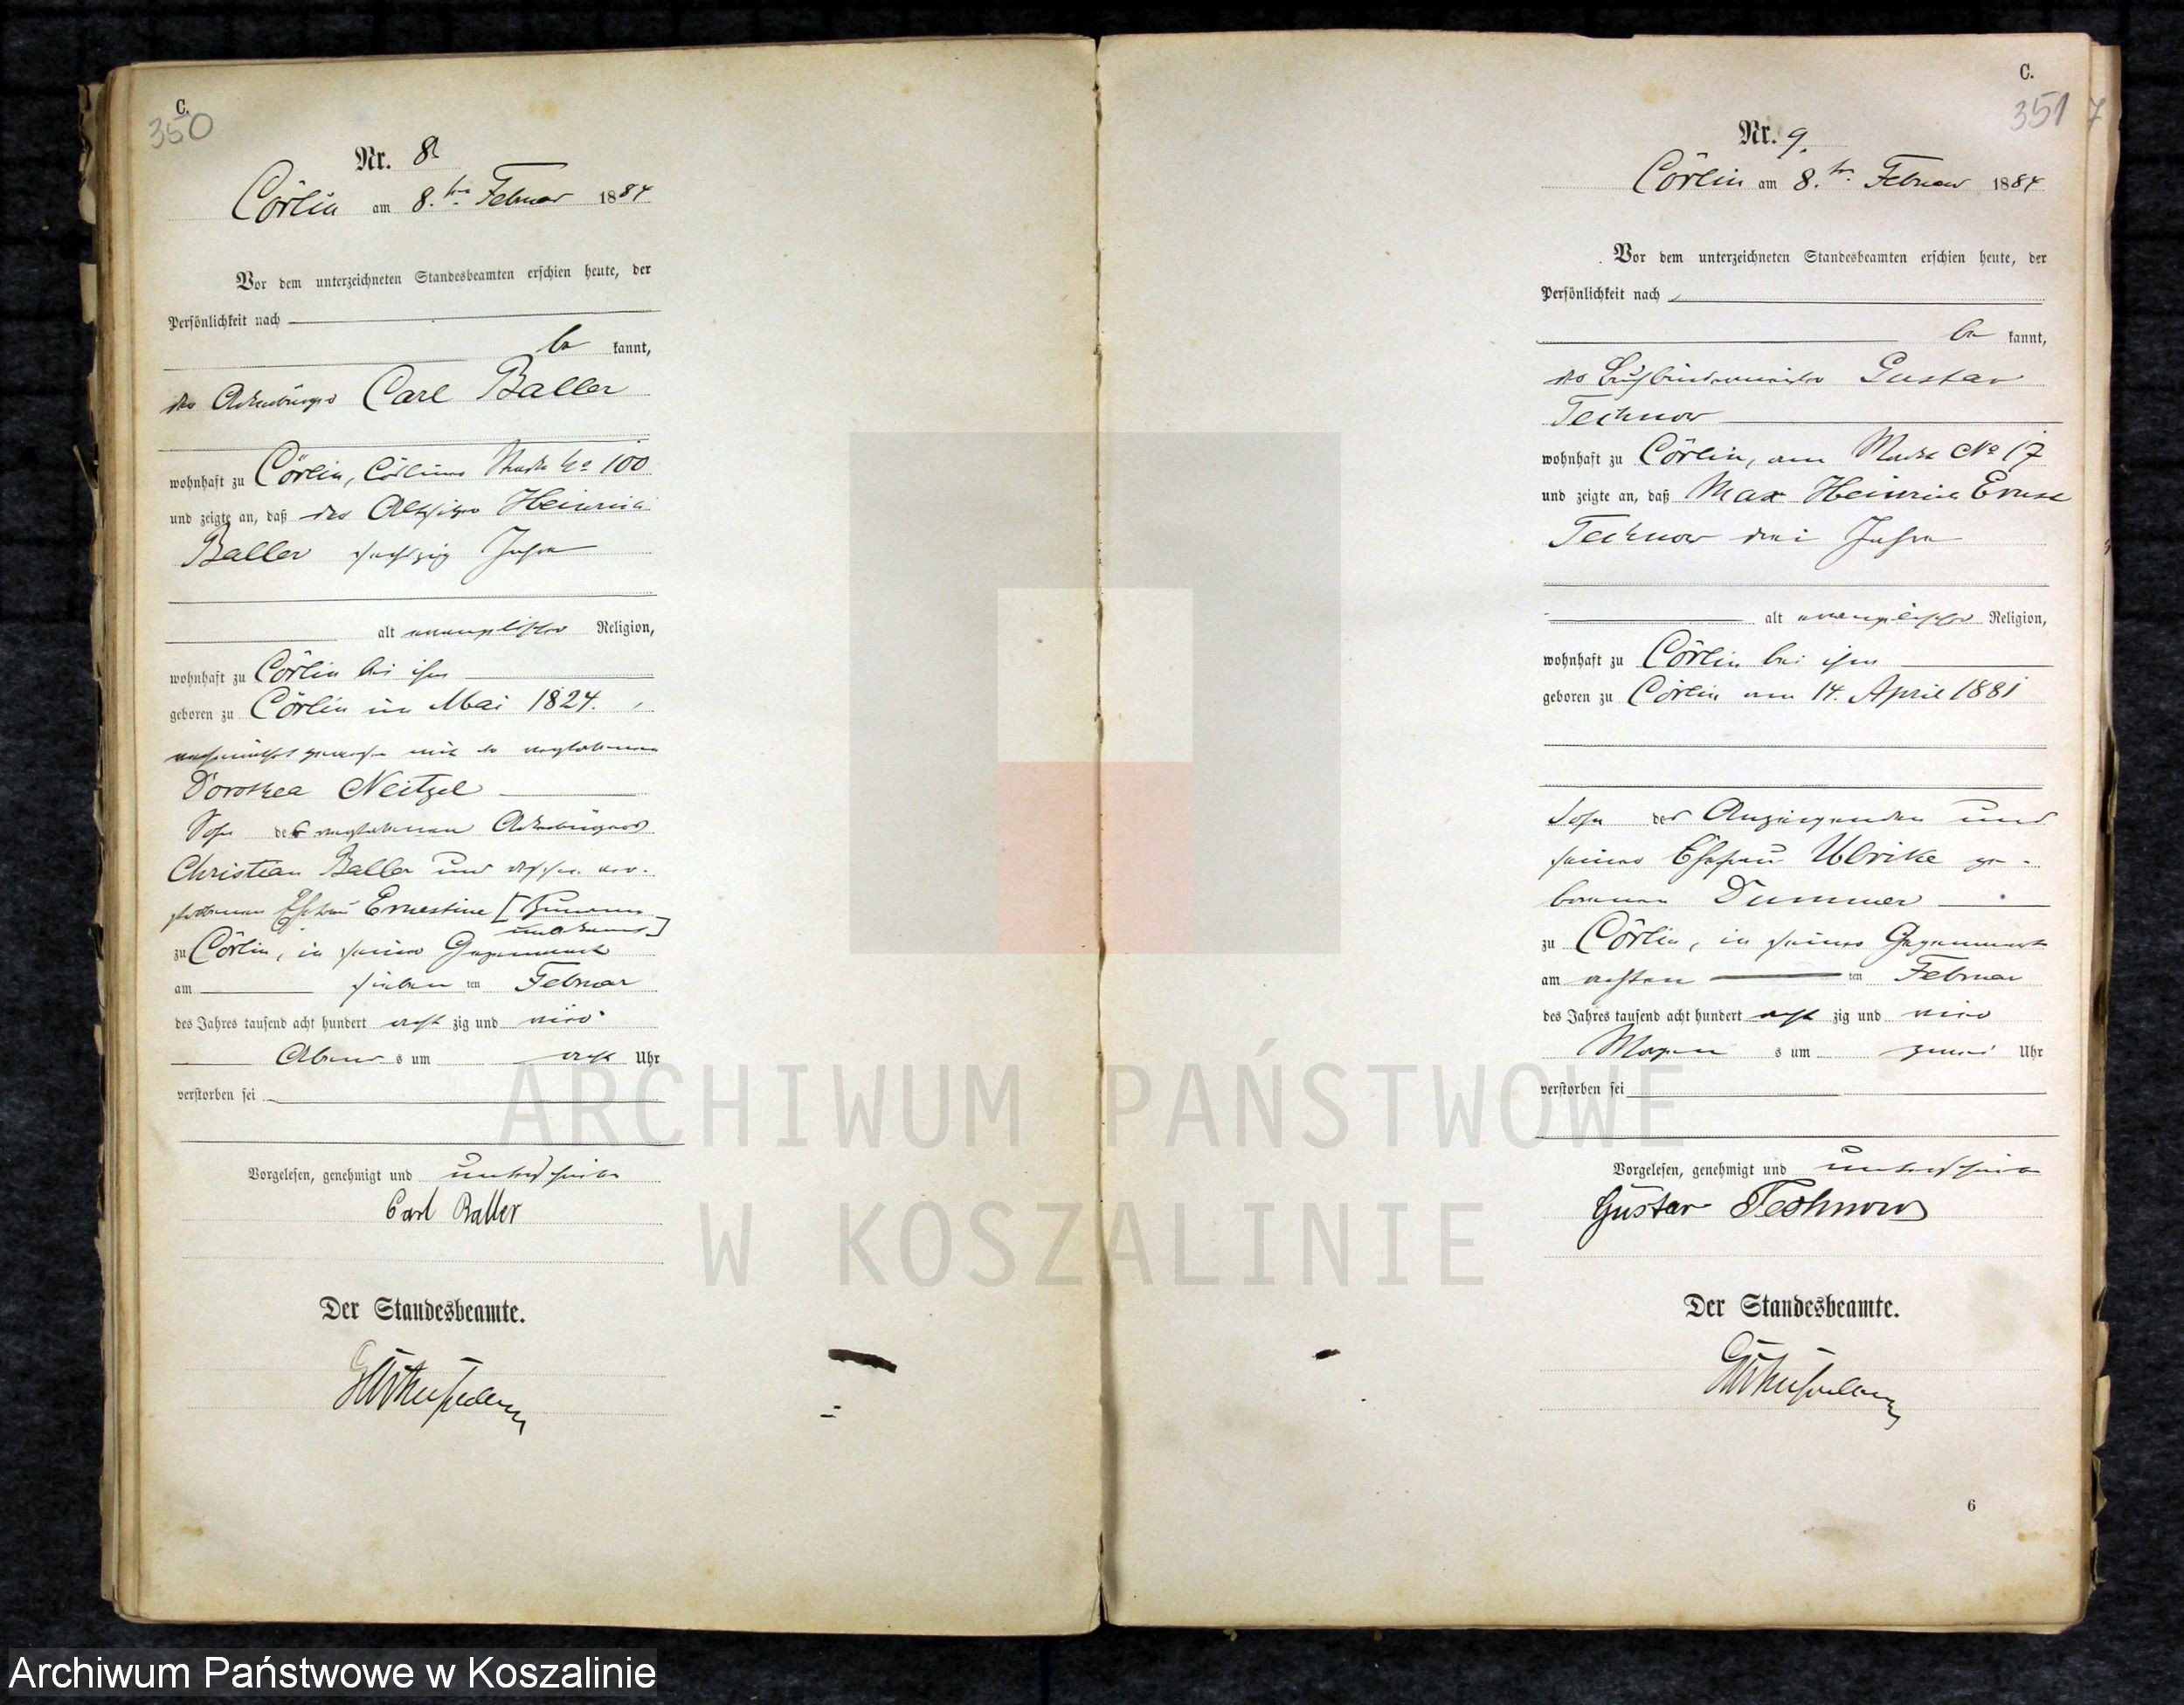 C.
350
Nr. 8.
Cörlin am 8. ten Februar 1884
Vor dem unterzeichneten Standesbeamten erschien heute, der
Persönlichkeit nach
be kannt,
der Ackerbürger Carl Baller
wohnhaft zu Cörlin, Cösliner Straße No 100
und zeigte an, daß der Altsitzer Heinrich
Baller sechszig Jahre
alt evangelischer Religion,
wohnhaft zu Cörlin bei ihm
geboren zu Cörlin im Mai 1824.,
verheirathet gewesen mit der verstorbenen
Dorothea Neitzel
Sohn des verstorbenen Ackerbürgers
Christian Baller und dessen ver-
storbenen Ehefrau Ernestine [Zuname
unbekannt]
zu Cörlin, in seiner Gegenwart
am sieben ten Februar
des Jahres tausend acht hundert acht zig und vier
Abend s um acht Uhr
verstorben sei
Vorgelesen, genehmigt und unterschrieben
Carl Baller
Der Standesbeamte.
C.
351 7
Nr. 9.
Cörlin am 8. ten Februar 1884
Vor dem unterzeichneten Standesbeamten erschien heute, der
Persönlichkeit nach
be kannt,
der Buchbindermeister Gustav
Technow
wohnhaft zu Cörlin, am Markt No 17
und zeigte an, daß Max Heinrich Ernst
Technow drei Jahre
alt evangelischer Religion,
wohnhaft zu Cörlin bei ihm
geboren zu Cörlin am 14. April 1881
Sohn des Anzeigenden und
seiner Ehefrau Ulrike ge-
borenen Dummer
zu Cörlin, in seiner Gegenwart
am achten ten Februar
des Jahres tausend acht hundert acht zig und vier
Morgen s um zwei Uhr
verstorben sei
Vorgelesen, genehmigt und unterschrieben
Gustav Technow
Der Standesbeamte.
6
ARCHIWUM PAŃSTWOWE
W KOSZALINIE
Archiwum Państwowe w Koszalinie